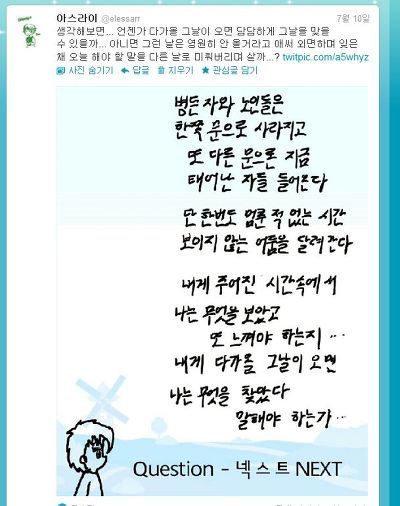 아스라이 @elessarr
7월 10일
생각해보면... 언젠가 다가올 그날이 오면 담담하게 그날을 맞을
수 있을까... 아니면 그런 날은 영원히 안 올거라고 애써 외면하며 잊은
채 오늘 해야 할 말을 다른 날로 미뤄버리며 살까...? twitpic.com/a5whyz
사진 숨기기 답글 지우기 관심글 담기
병든 자와 노인들은
한쪽 문으로 사라지고
또 다른 문으론 지금
태어난 자들 들어온다
단 한번도 멈춘 적 없는 시간
보이지 않는 어둠을 달려 간다
내게 주어진 시간속에서
나는 무엇을 보았고
또 느껴야 하는지...
내게 다가올 그날이 오면
나는 무엇을 찾았다
말해야 하는가...
Question - 넥스트 NEXT